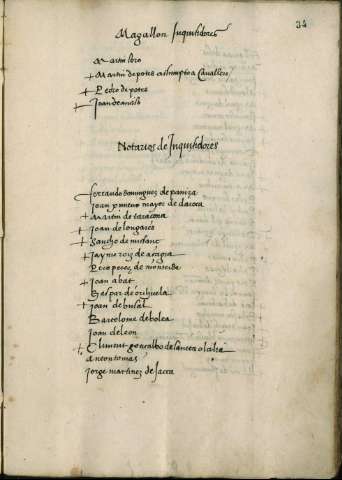 34
Magallon Inquisidores
Martin
+ Martin de potes assumpto a Cavallero
+ Pedro de potes
+ Joan de
Notarios de Inquisidores
ferrando dominguez de paniza
Joan ximeno mayor de daroca
+ Martin de taracona
+ Joan de longares
+ Sancho de
+ Jayme roiz de açagra
Pero perez de
+ Joan abat
Gaspar de orihuela
+ Joan de
Bartolome de bolea
Joan de leon
+ Climent gonçalbo de sancta olalia
Anton tomas
Jorge martinez de Jacca